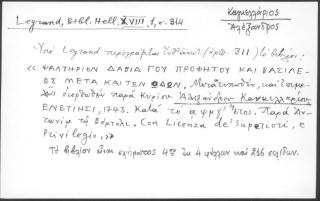 Legrand, Bibl. Hell. XVIII, 1, σ. 314
Καγκελλάριος
Ἀλέξανδρος
Ὑπὸ Legrand περιγράφεται (ἀριθ. 311) τὸ βιβλίον:
"ΨΑΛΤΗΡΙΟΝ ΔΑΒΙΔ ΤΟΥ ΠΡΟΦΗΤΟΥ ΚΑΙ ΒΑΣΙΛΕ-
ΩΣ ΜΕΤΑ ΚΑΙ ΤΩΝ ΩΔΩΝ, Μετατυπωθὲν, καὶ ἐπιμε-
λῶς διορθωθὲν παρὰ Κυρίου Ἀλεξάνδρου Καγκελλαρίου
ΕΝΕΤΙΗΣΙ, 1743. Κατὰ τὸ αψμγʹ ἔτος. Παρὰ Ἀν-
τωνίῳ τῷ Βόρτολι. Con Licenza de' Superiori, e
Privilegio,"
Τὸ βιβλίον εἶναι σχήματος 4ον ἐκ 4 φύλλων καὶ 216 σελίδων.